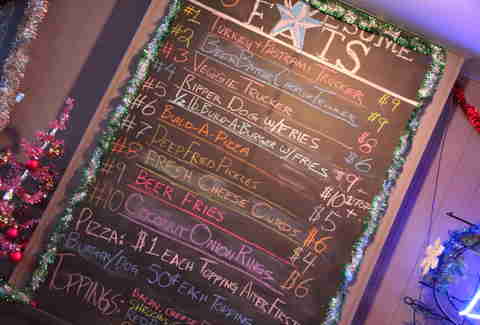 AWESOME
EATS
#1 TURKEY + PASTRAMI TRUCKER $9
#2 BEER BUTTER CHEESE TRUCKER $9
#3 VEGGIE TRUCKER $8
#4 RIPPER DOG W/ FRIES $6
#5 BUILD-A-BURGER W/ FRIES $9
#6 BUILD-A-PIZZA $10
#7 DEEP FRIED PICKLES $5
#8 FRESH CHEESE CURDS $6
#9 BEER FRIES $4
#10 COCONUT ONION RINGS $6
PIZZA: $1 EACH TOPPING AFTER FIRST
BURGER/DOG 50¢ EACH TOPPING
TOPPINGS: BACON, CHEESE